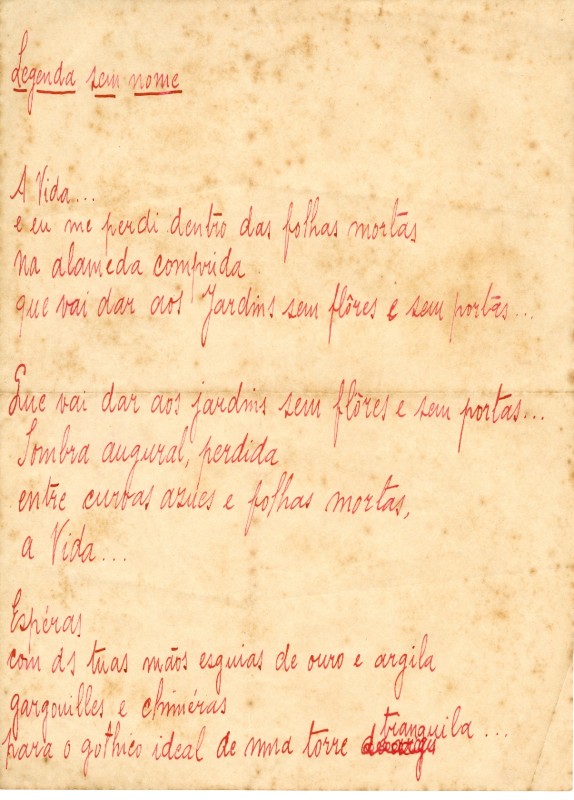 Legenda sem nome
A Vida...
e eu me perdi dentro das folhas mortas
na alameda comprida
que vai dar aos Jardins sem flôres e sem portas...
Que vai dar aos jardins sem flôres e sem portas...
Sombra augural, perdida
entre curvas azues e folhas mortas,
a Vida...
Espéras
com as tuas mãos esguias de ouro e argila
gargouilles e chiméras
para o gothico ideal de uma torre tranquila...